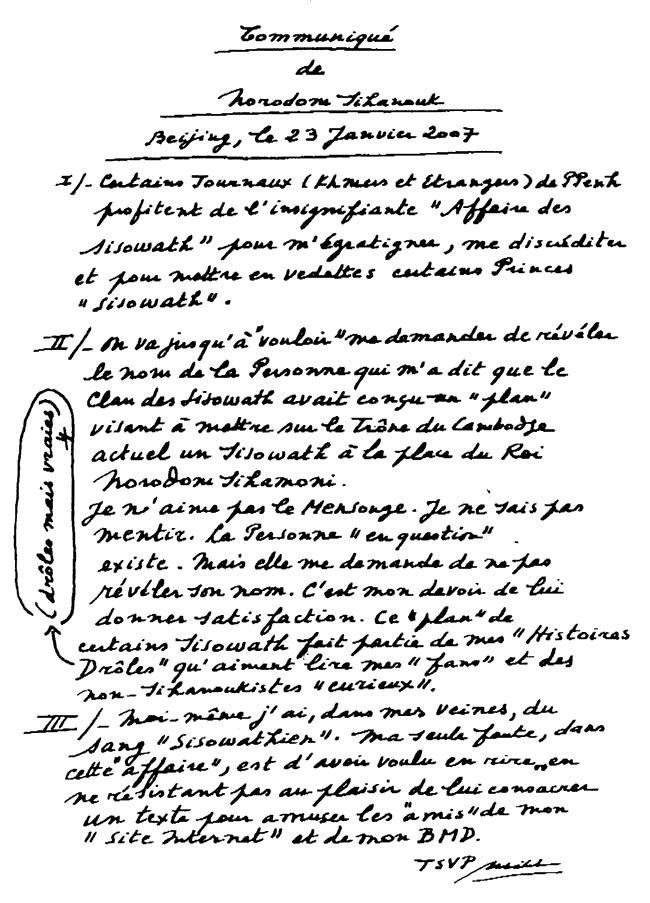 Communiqué
de
Norodom Sihanouk
Beijing, le 23 Janvier 2007
I/- Certains Journaux (Khmers et Etrangers) de PPenh
profitent de l'insignifiante "Affaire des
Sisowath" pour m'égratigner, me discréditer
et pour mettre en vedettes certains Princes
"Sisowath".
II/- On va jusqu'à "vouloir" me demander de révéler
le nom de la Personne qui m'a dit que le
Clan des Sisowath avait conçu un "plan"
visant à mettre sur le Trône du Cambodge
actuel un Sisowath à la place du Roi
Norodom Sihamoni.
Je n'aime pas le Mensonge. Je ne sais pas
mentir. La Personne "en question"
existe. Mais elle me demande de ne pas
révéler son nom. C'est mon devoir de lui
donner satisfaction. Ce "plan" de
certains Sisowath fait partie de mes "Histoires
Drôles" qu'aiment lire mes "fans" et des
non-Sihanoukistes "curieux".
(drôles mais vraies)
III/- Moi-même j'ai, dans mes veines, du
sang "Sisowathien". Ma seule faute, dans
cette "affaire", est d'avoir voulu en rire, en
ne résistant pas au plaisir de lui consacrer
un texte pour amuser les "amis" de mon
"Site Internet" et de mon BMD.
TSVP